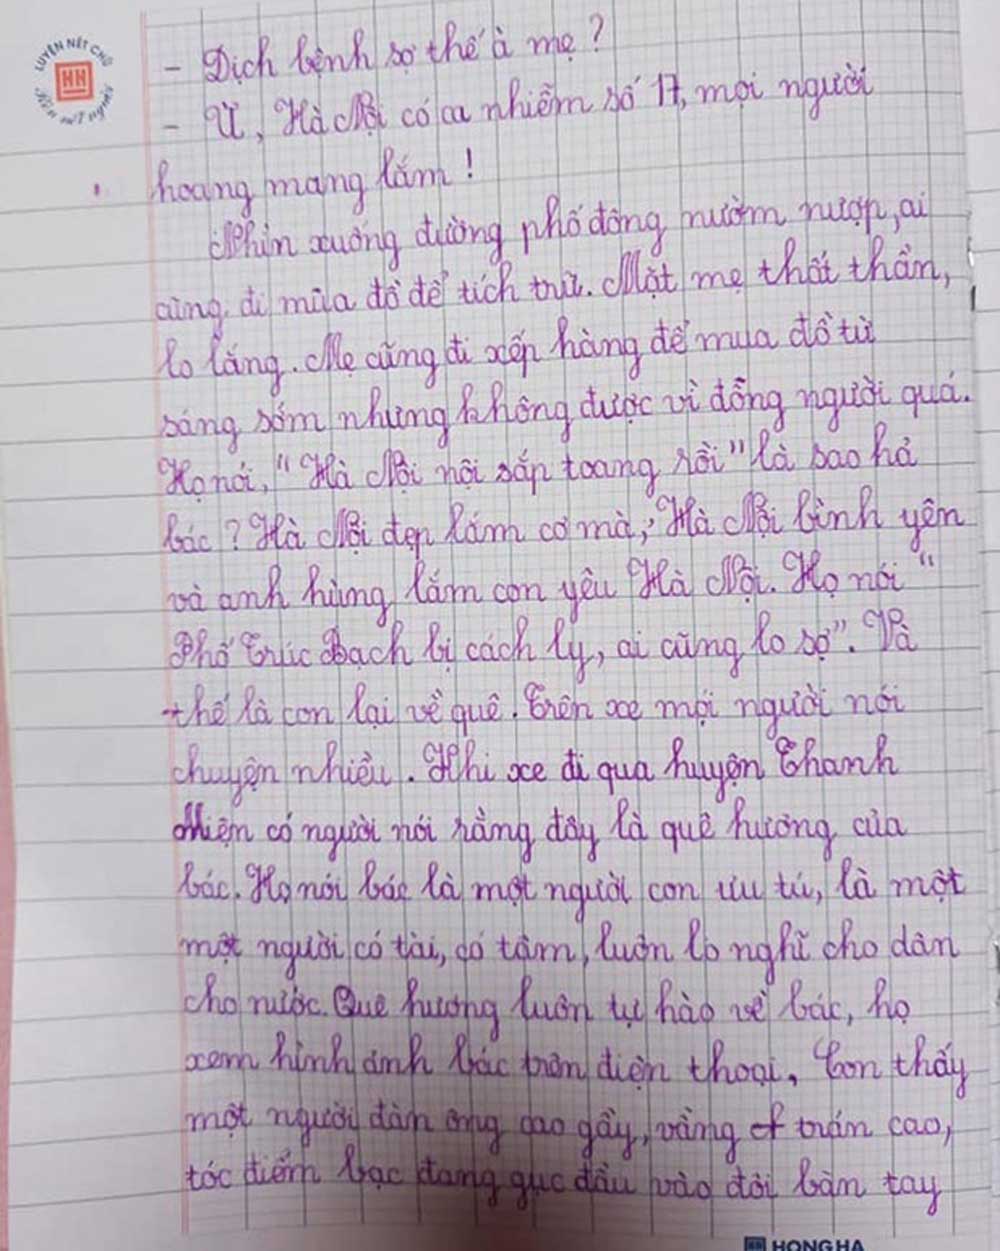 LUYỆN NÉT CHỮ
HH
Rèn nết người
- Dịch bệnh sợ thế à mẹ?
- Ừ, Hà Nội có ca nhiễm số 17, mọi người
hoang mang lắm!
Nhìn xuống đường phố đông nườm nượp, ai
cũng đi mua đồ để tích trữ. Mặt mẹ thất thần,
lo lắng. Mẹ cũng đi xếp hàng để mua đồ từ
sáng sớm nhưng không được vì đông người quá.
Họ nói, "Hà Nội nội sắp toang rồi" là sao hả
bác? Hà Nội đẹp lắm cơ mà, Hà Nội bình yên
và anh hùng lắm con yêu Hà Nội. Họ nói "
Phố Trúc Bạch bị cách ly, ai cũng lo sợ". Và
thế là con lại về quê. Trên xe mọi người nói
chuyện nhiều. Khi xe đi qua huyện Thanh
Miện có người nói rằng đây là quê hương của
bác. Họ nói bác là một người con ưu tú, là một
một người có tài, có tâm, luôn lo nghĩ cho dân
cho nước. Quê hương luôn tự hào về bác, họ
xem hình ảnh bác trên điện thoại. Con thấy
một người đàn ông cao gầy, vầng trán cao,
tóc điểm bạc đang gục đầu vào đôi bàn tay
HH HONG HA